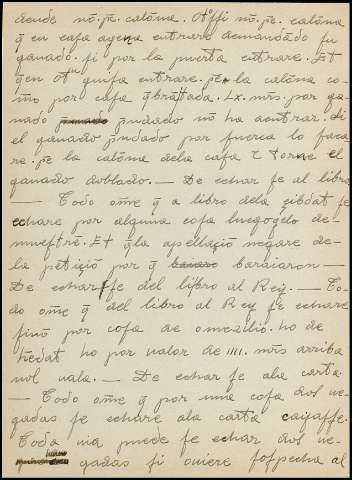 dende nõ. pe. calõma. Otssi nõ. pe. calõma
q̃ en casa agena entrare demandãdo su
ganado. si por la puerta entrare. Et
qen otrª guisa entrare. pe. la calõma co-
mo por casa q̃brãtada. Lx. mrs. por ga-
nado pudado nõ ha aentrar. Si
el ganado pudado por fuerça lo saca
re. pe la calõma dela casa τ torne el
ganado doblado. — De echar se al libro
— Todo ome q̃ a libro dela cibdat se
echare por alguna cosa luegogelo de-
muestrẽ. Et q̃la apellaçiõ negare de-
la petiçiõ por q̃ baraiaron —
De echarse del libro al Rey. — To-
do ome q̃ del libro al Rey se echare
sino por cosa de omezilio. ho de
hedat ho por valor de IIII. mrs arriba
nol vala. — De echar se ala carta
— Todo ome q̃ por una cosa dos ve-
gadas se echare ala carta cayasse.
Toda via puede se echar dos ve-
gadas si oviere sospecha al